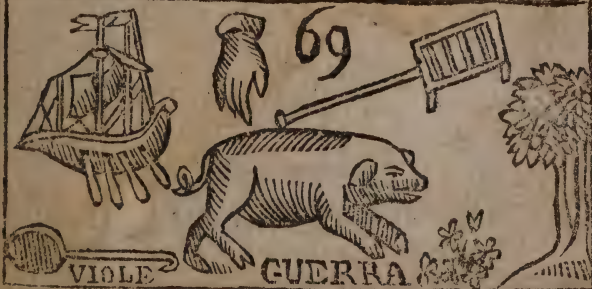 69
VIOLE GUERRA